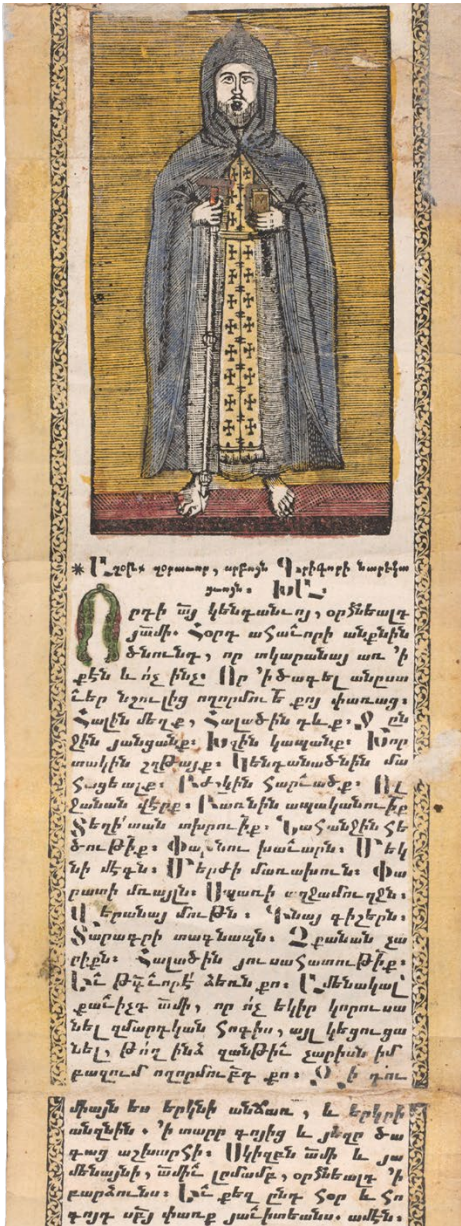 * Աղօթք զօրաւոր, սրբոյն Գրիգորի նարեկա
ցւոյն։ ԽԱ
Որդի ա՟յ կենդանւոյ, օրհնեալդ
յա՟մի. Հօրդ ահաւորի անքնին
ծնունդ, որ տկարանայ առ ՚ի
քէն և ոչ ինչ։ Որ ՚ի ծագել անըստ
ւեր նշուլից ողորմուե՟ քոյ փառաց։
Հալին մեղք, Հալածին դևք։ Ջն
ջին յանցանք։ Խզին կապանք։ Խոր
տակին շղթայք։ Կենդանածնին մա
հացեալք։ Բժշկին հարւածք։ Ող
ջանան վէրք։ Բառնին ապականուիք
Տեղի՛ տան տխրուիք։ Նահանջին հե
ծութիք։ Փախնու խաւարն։ Մեկ
նի մէգն։ Մերժի մառախուն։ Փա
րատի մռայլն։ Սպառի աղջամուղջն։
Վերանայ մութն։ Գնայ գիշերն։
Տարագրի տագնապն։ Չքանան չա
րիքն։ Հալածին յուսահատութիք։
Եւ թգ՟ւորէ ձեռն քո։ Ամենակալ
քաւիչդ ա՟մի, որ ոչ եկիր կորուսա
նել զմարդկան հոգիս, այլ կեցուցա
նել, թող ինձ զանթիւ չարիսն իմ
բազում ողորմուբ՟դ քո։ Զի դու
միայն ես երկնի անճառ, և երկրի
անզնին. ՚ի տարր գոյից և յեզր ծա
գաց աշխարհի։ Սկիզբն ա՟մի և յա
մենայնի, ա՟միւ լրմամբ, օրհնեալդ ՚ի
բարձունս։ Եւ քեզ ընդ հօր և հո
գւոյդ սբյ՟ փառք յաւիտեանս. ամէն.